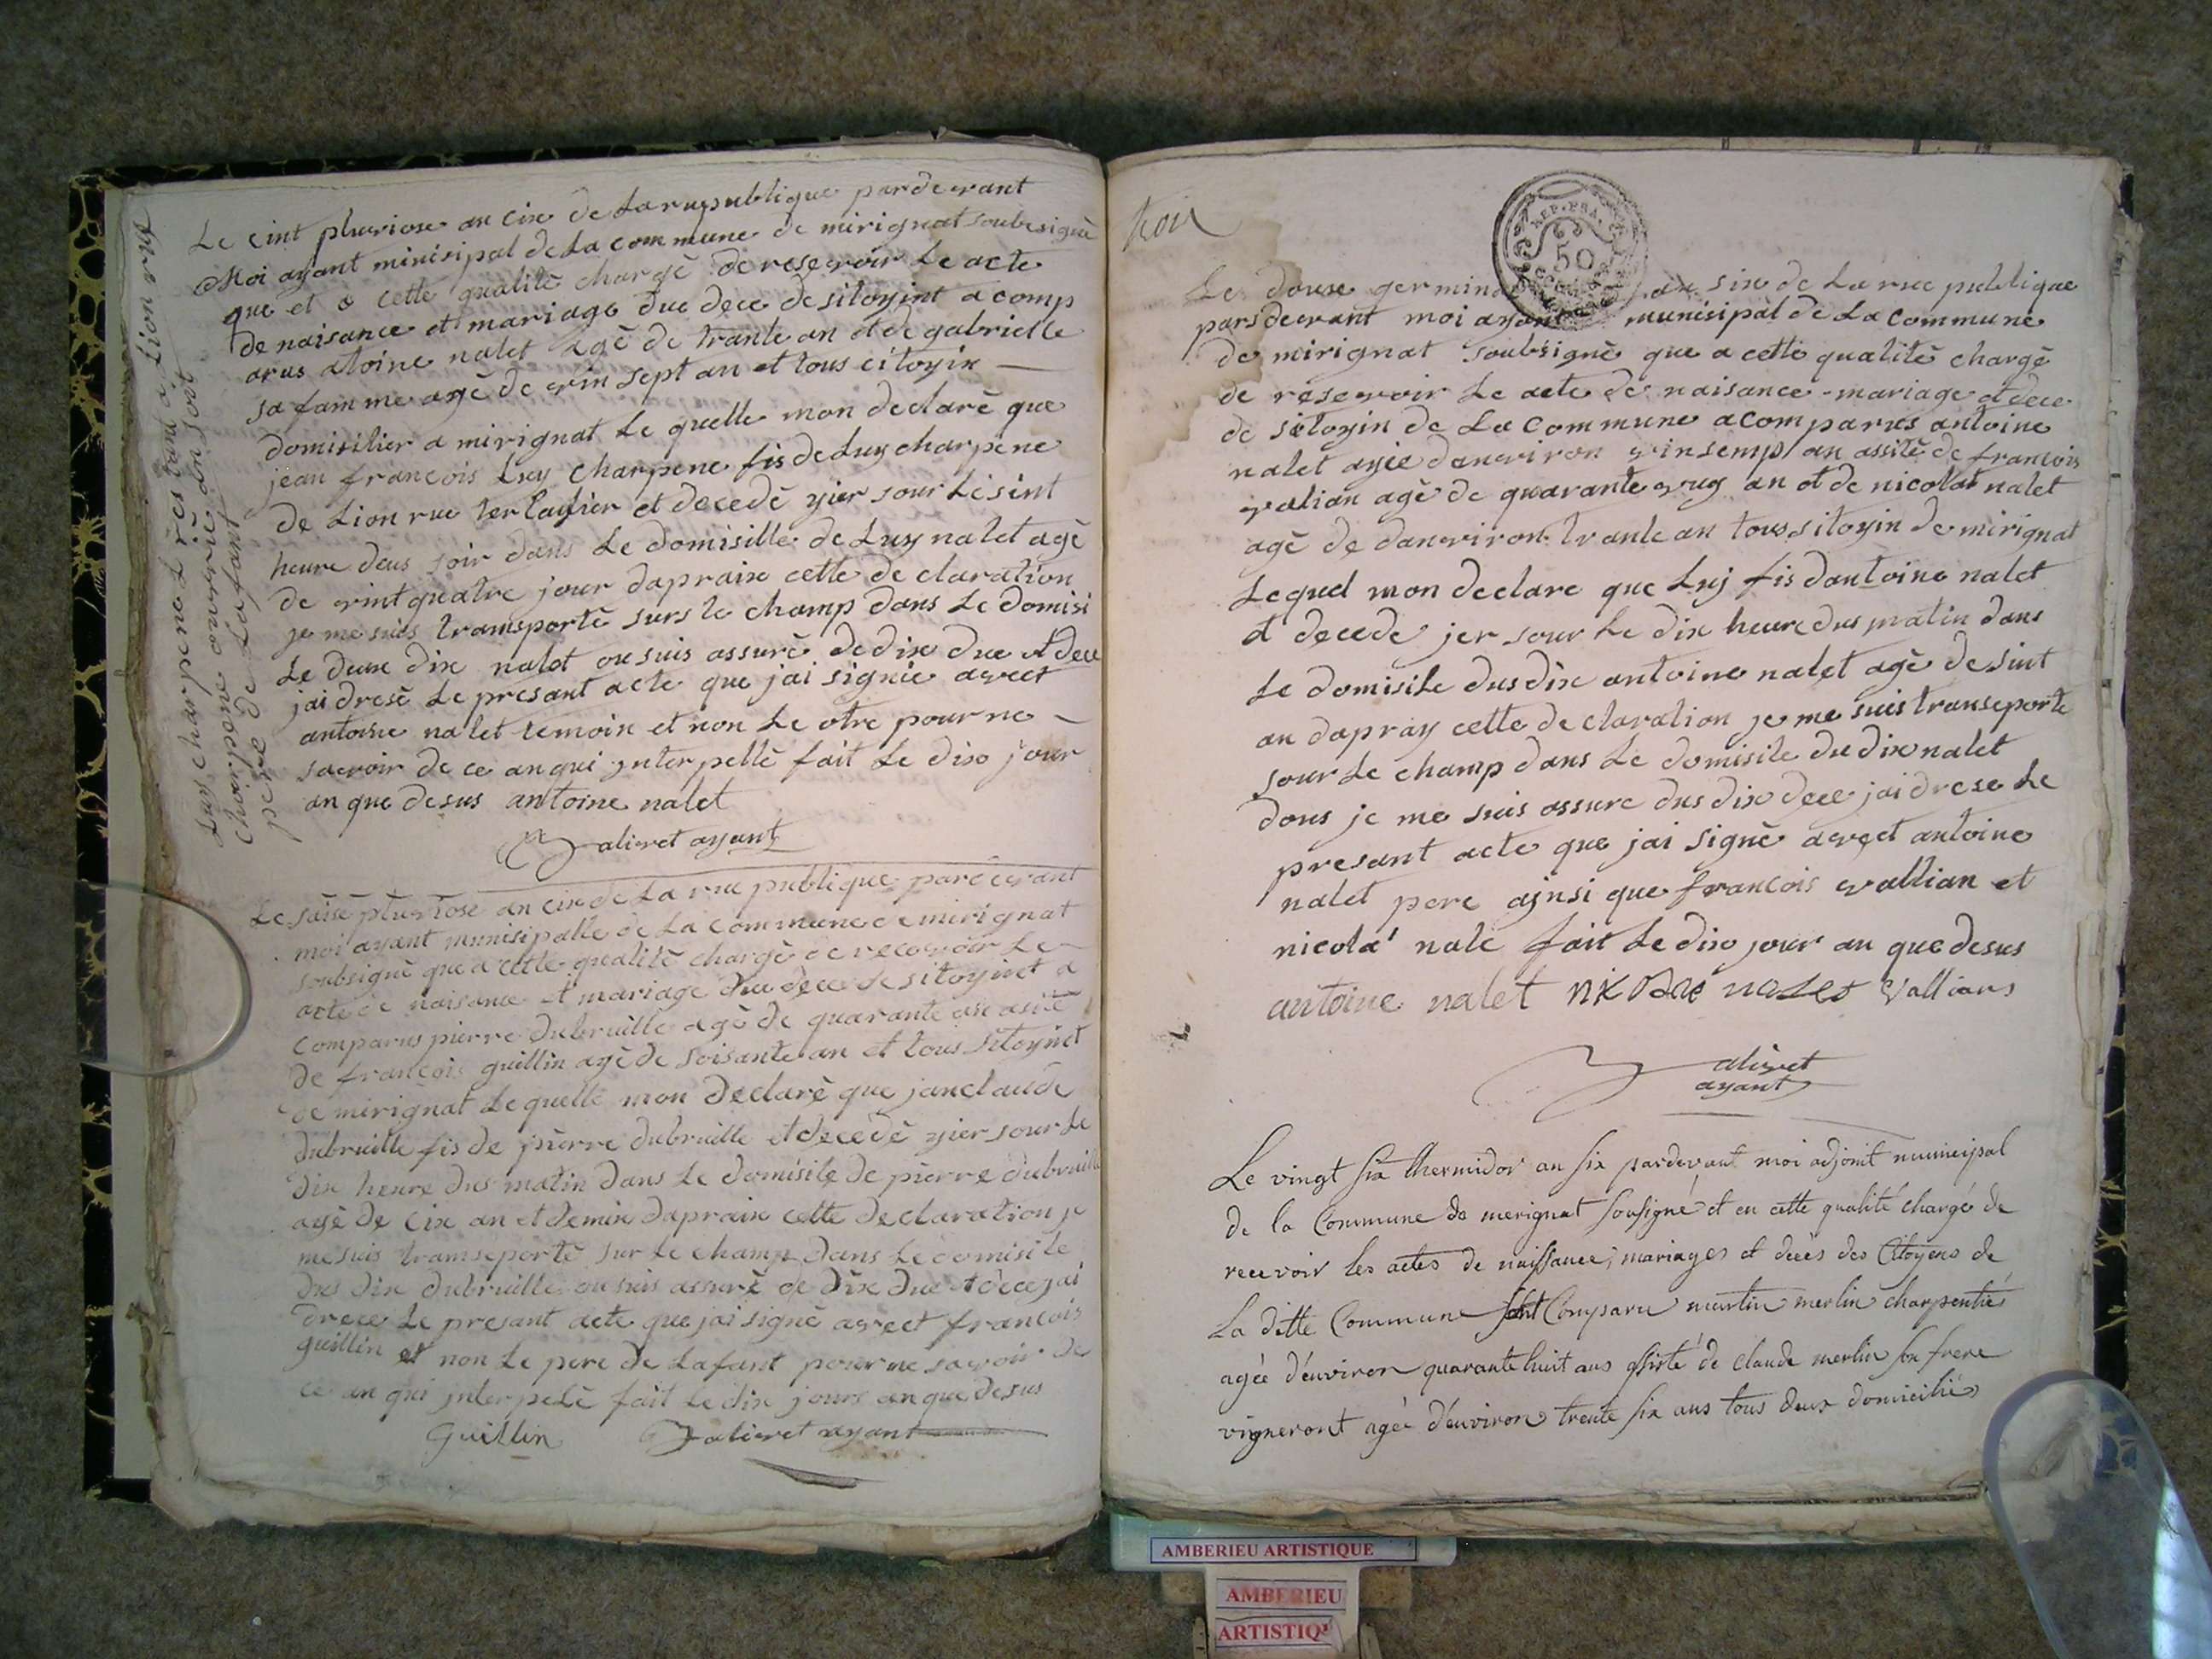 Le cint pluviose an cix de La rupublique pardevant
Moi ayant minisipal de La commune de mirignat soubesigné
que et a cette qualité chargé de resevoir Le acte
de naisance et mariage due dece de sitoyint a comp
arus atoine nalet agé de trante an et de gabrielle
sa famme agé de vin sept an et tous citoyix
domisilier a mirignat Le quelle mon declaré que
jean francois Luy charpene fis de Luy charpene
de Lion rue et decedé yier sour Le sint
heure deus soir dans Le domisille de Luy nalet agé
de vint quatre jour dapraix cette de claration
je me suis transporté surs le champ dans Le domisi
Le deux dix nalet ou suis assuré de dix due et dece
jai dresé Le presant acte que jai signie avect
antoine nalet temoin et non Le otre pour ne
savoir de ce an qui ynterpellé fait Le dix jour
an que desus antoine nalet
valivret ayant
Luy charpene restant a Lion rue
charpene ouvrié an soit
pere de Lafant
Le saisé pluviose an cix de La rue publique pardevant
moi ayant munisipalle de La commune de mirignat
soubsigné que a cette qualité chargé de recevoir Le
acte de naisance et mariage due dece de sitoyint a
comparus pierre dubruille agé de quarante an asité
de francois guillin agé de soisante an et tous sitoyint
de mirignat Le quelle mon declaré que jan claude
dubruille fis de pierre dubruille et decedé yier sour Le
dix heure dus matin dans Le domisile de pierre dubruille
agé de cix an et demix dapraix cette declaration je
me suis transeporté sur Le champ dans Le domisile
dus dix dubruille ou suis assuré de dix due et dece jai
drece Le presant acte que jai signé avect francois
guillin et non Le pere de Lafant pour ne savoir de
ce an qui ynterpelé fait Le dix jours an que desus
Guillin valivret ayant
REP. FRA.
50
Le douse germinal an six de La rue publique
pars devant moi ayant munisipal de La commune
de mirignat soubsigné que a cette qualité chargé
de resevoir Le acte de naisance mariage et dece
de sitoyin de La commune a comparus antoine
nalet agee danviron vinsemp an assité de francois
valian agé de quarante vuy an et de nicolat nalet
agé de danviron trante an tous sitoyin de mirignat
Lequel mon declare que Luy fis dantoine nalet
et decede jer sour Le dix heure dus matin dans
Le domisile dus dix antoine nalet agé de sint
an dapray cette declaration je me suis transeporte
sour Le champ dans Le domisile du dix nalet
dons je me suis assure dus dix dece jai drese Le
presant acte que jai signé avect antoine
nalet pere ajnsi que francois vallian et
nicola nale fait Le dix jour an que desus
antoine nalet nalet Vallians
valivret
ayant
Le vingt six thermidor an six pardevant moi adjoint municipal
de la Commune de merignat sousigné et en cette qualité chargé de
recevoir les actes de naissance, mariages et deces des Citoyens de
La ditte Commune sont Comparu martin merlin charpentié
agée d'environ quarante huit ans assisté de claude merlin son frere
vigneront agée d'environ trente six ans tous deux domicilié
AMBERIEU ARTISTIQUE
AMBERIEU
ARTISTIQ